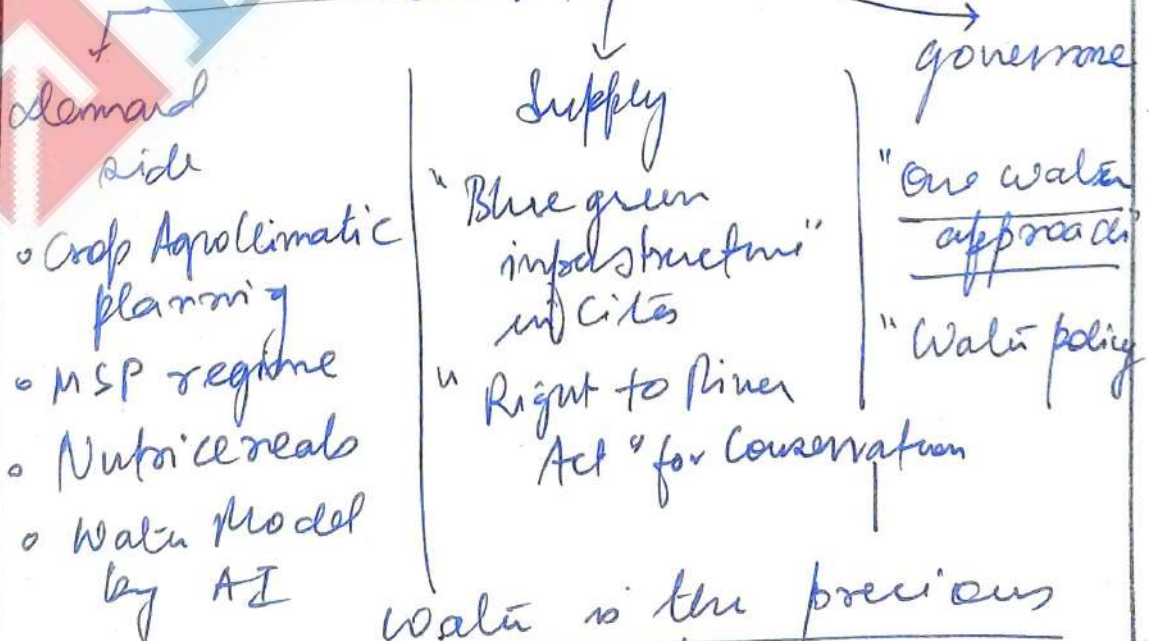 Demand
side
• Crop Agroclimatic
planning
• MSP regime
• Nutricereals
• Water Model
by AI
Supply
"Blue green
infrastructure"
in Cities
" Right to River
Act" for Conservation
governance
"One water
approach"
"Water policy
Water is the precious